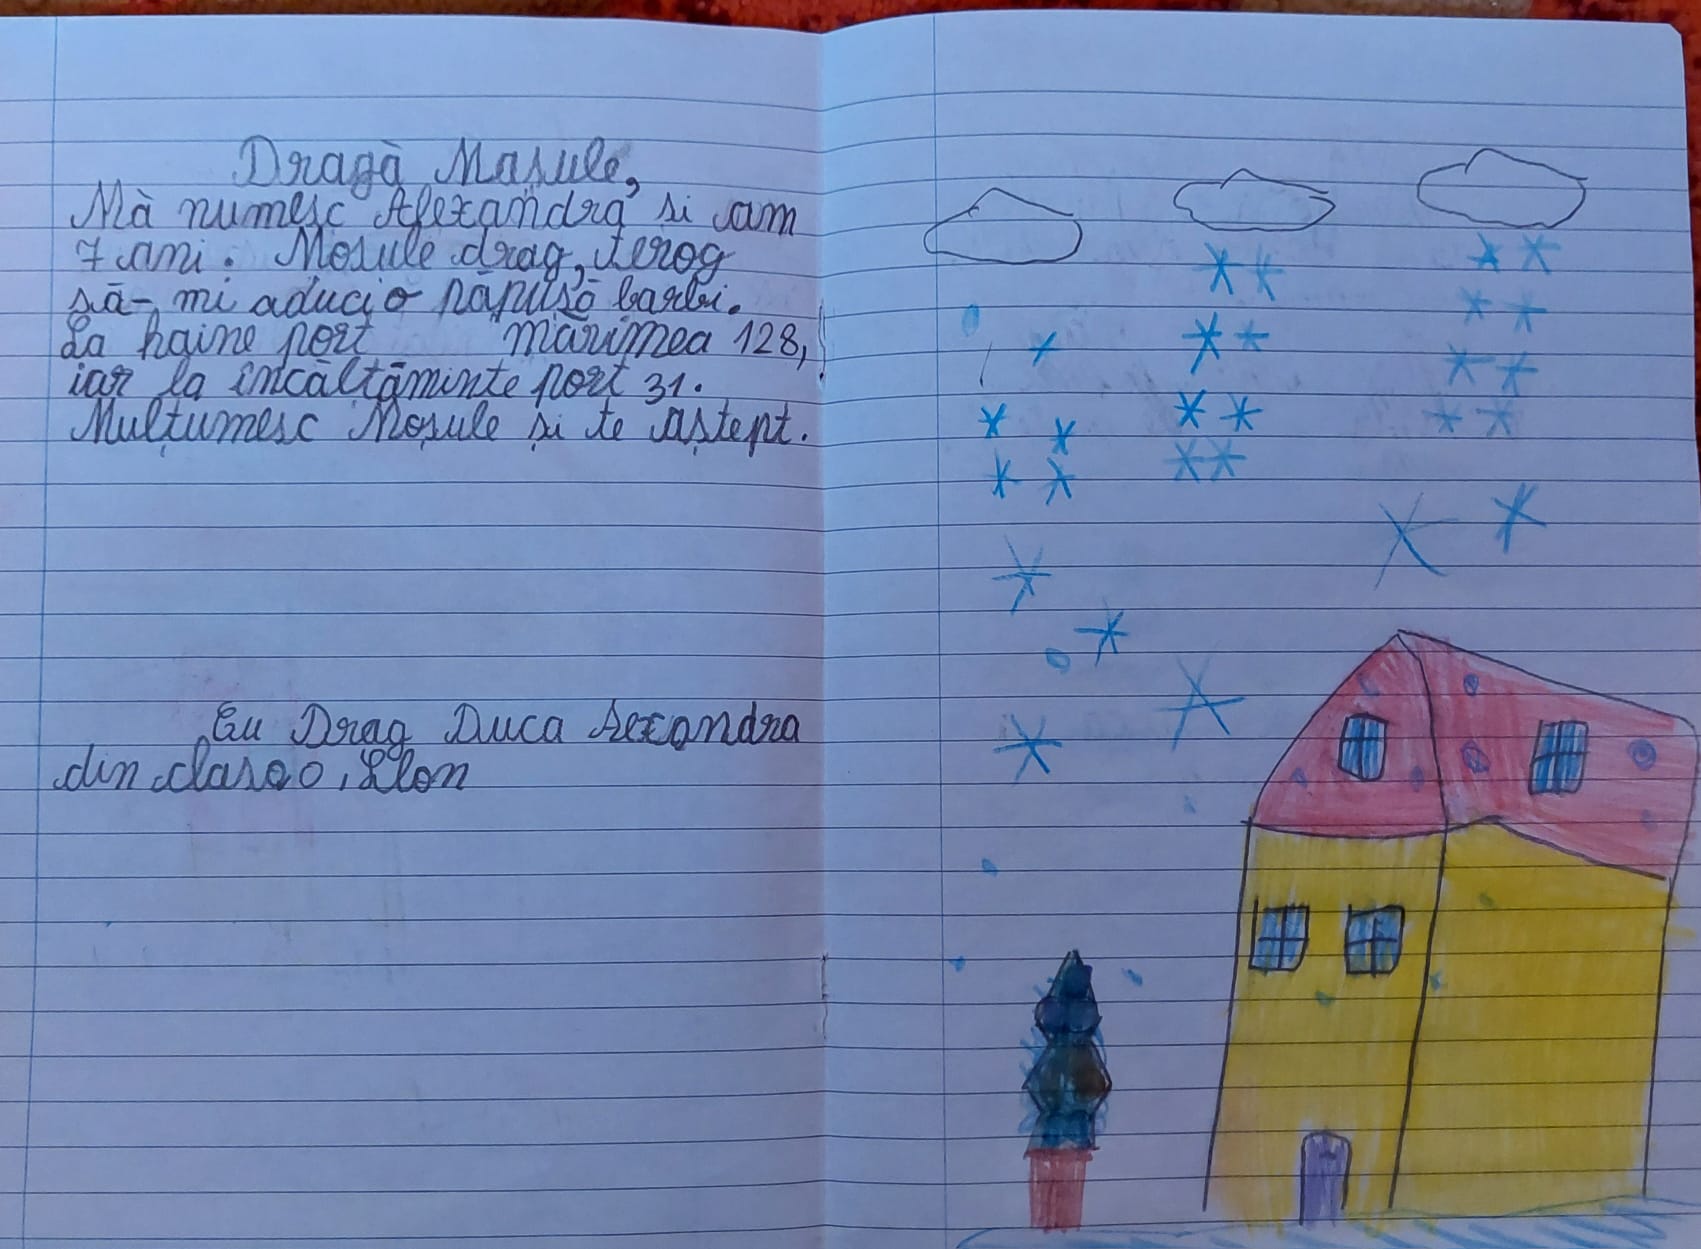 Dragă Maşule,
Mă numesc Alexandra si am
7 ani. Moşule drag, te rog
să-mi aduci o păpuşă barbi.
La haine port mărimea 128,
iar la incăltăminte port 31.
Mulţumesc Moşule şi te aştept.
Eu Drag Duca Alexandra
din clasa 0,